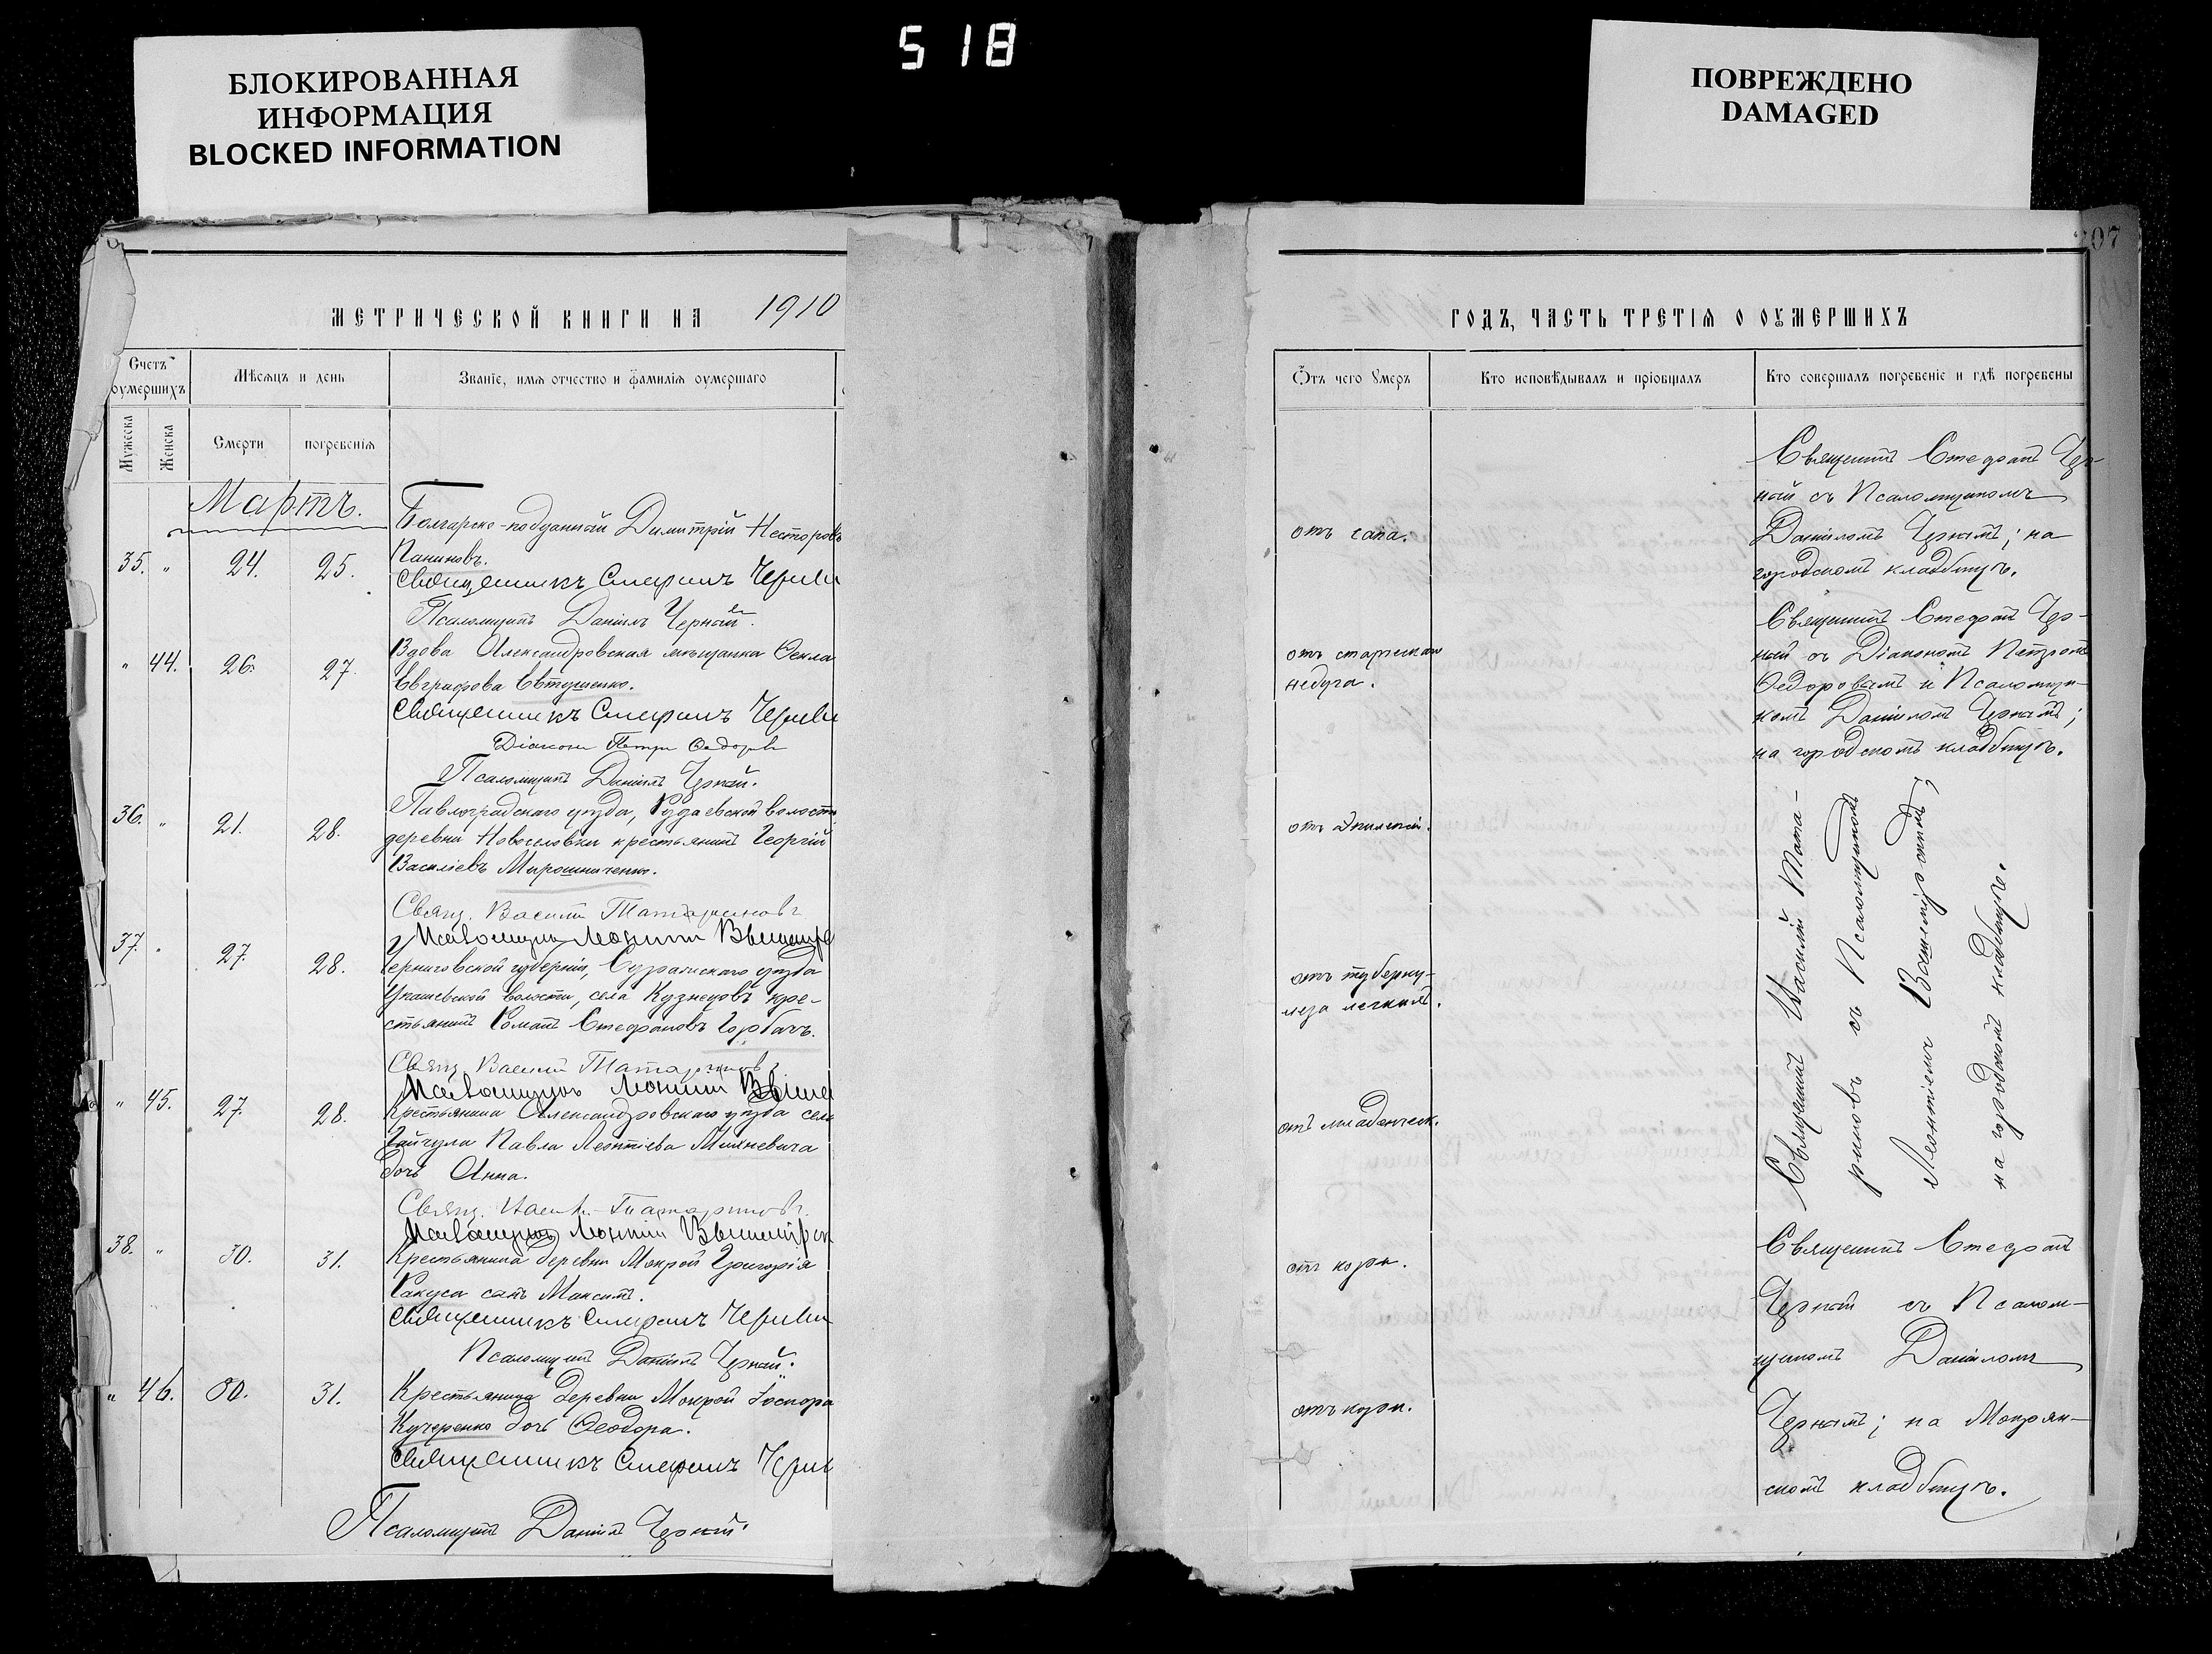 БЛОКИРОВАННАЯ
ИНФОРМАЦИЯ
BLOCKED INFORMATION
518
ПОВРЕЖДЕНО
DAMAGED
07
МЕТРИЧЕСКОЙ КНИГИ НА 1910
Счетъ оумершихъ
Мѣсяцъ и день
Званіе, имя отчество и фамилія оумершаго
Мужеска
Женска
Смерти
погребенія
Мартъ.
Болгарско-подданный Димитрій Несторовъ
35. " 24. 25. Паниновъ.
Священникъ Стефанъ Черны
Псаломщикъ Даніилъ Черный.
" 44. 26. 27. Вдова Александровская мѣщанка Ѳекла
Евграфова Евтушенко.
Священникъ Стефанъ Черны
Діаконъ Петръ Ѳедоровъ
Псаломщикъ Даніилъ Черный.
36. " 21. 28. Павлоградскаго уѣзда, Рудаевской волости
деревни Новоселовки крестьянинъ Георгій
Василіевъ Мирошниченко.
Свящ. Василій Татариновъ
Псаломщикъ Леонтій
37. " 27. 28. Черниговской губерніи, Суражскаго уѣзда
волости, села Кузнецовъ кре-
стьянинъ Романъ Стефановъ Горбачъ.
Свящ. Василій Татариновъ
Псаломщикъ Леонтій
" 45. 27. 28. Крестьянина Александровскаго уѣзда села
Гайчула Павла Леонтіева Михневича
дочь Анна.
Свящ. Васил. Татариновъ.
Псаломщикъ Леонтій
38. " 30. 31. Крестьянина деревни Мокрой Григорія
Ракуса сынъ Максимъ.
Священникъ Стефанъ Черны
Псаломщикъ Даніилъ Черный.
" 46. 30. 31. Крестьянина деревни Мокрой
Кучеренко дочь Ѳеодора.
Священникъ Стефанъ Черн
Псаломщикъ Даніилъ Черный.
ГОДЪ, ЧАСТЬ ТРЕТІЯ О ОУМЕРШИХЪ
Отъ чего Умеръ
Кто исповѣдывалъ и пріобщалъ
Кто совершалъ погребеніе и гдѣ погребены
отъ сапа.
Священникъ Стефанъ Чер-
ный съ Псаломщикомъ
Даніиломъ Чернымъ; на
городскомъ кладбищѣ.
отъ старческаго
недуга.
Священникъ Стефанъ Чер-
ный съ Діакономъ Петромъ
Ѳедоровымъ и Псаломщи-
комъ Даніиломъ Чернымъ;
на городскомъ кладбищѣ.
отъ эпилепсіи.
отъ туберку-
леза легкихъ.
отъ младенческ.
Священникъ Василій Тата-
риновъ съ Псаломщикомъ
Леонтіемъ
на городскомъ кладбищѣ.
отъ кори.
отъ кори.
Священникъ Стефанъ
Черный съ Псалом-
щикомъ Даніиломъ
Чернымъ; на Мокрян-
скомъ кладбищѣ.